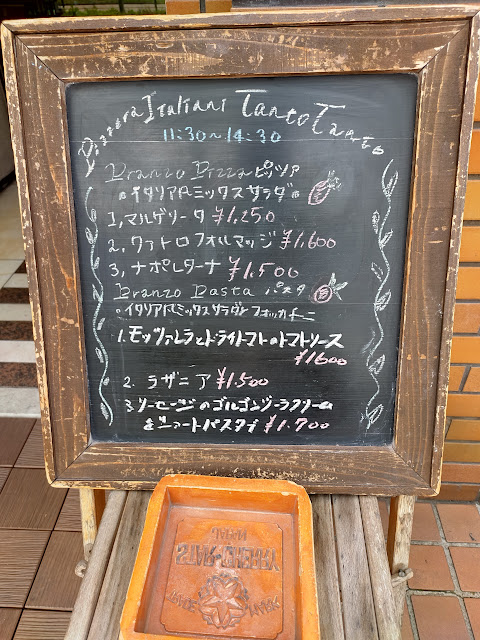 Pizzeria Italiani Tanto Tanto
11:30~14:30
Pranzo Pizza ピッツア
・イタリアパミックスサラダ・
1, マルゲリータ ¥1.250
2. クアトロフォルマッジ ¥1.600
3, ナポレターナ ¥1.500
Pranzo Pasta パスタ
・イタリアパミックスサラダとフォッカチーニ
1. モッツァレラとドライトマトのトマトソース
¥1600
2. ラザニア ¥1.500
3, ソーセージのゴルゴンゾーラクリーム
&ショートパスタ ¥1.700
JAPAN
SUN-CHERRY
TRADE MARK